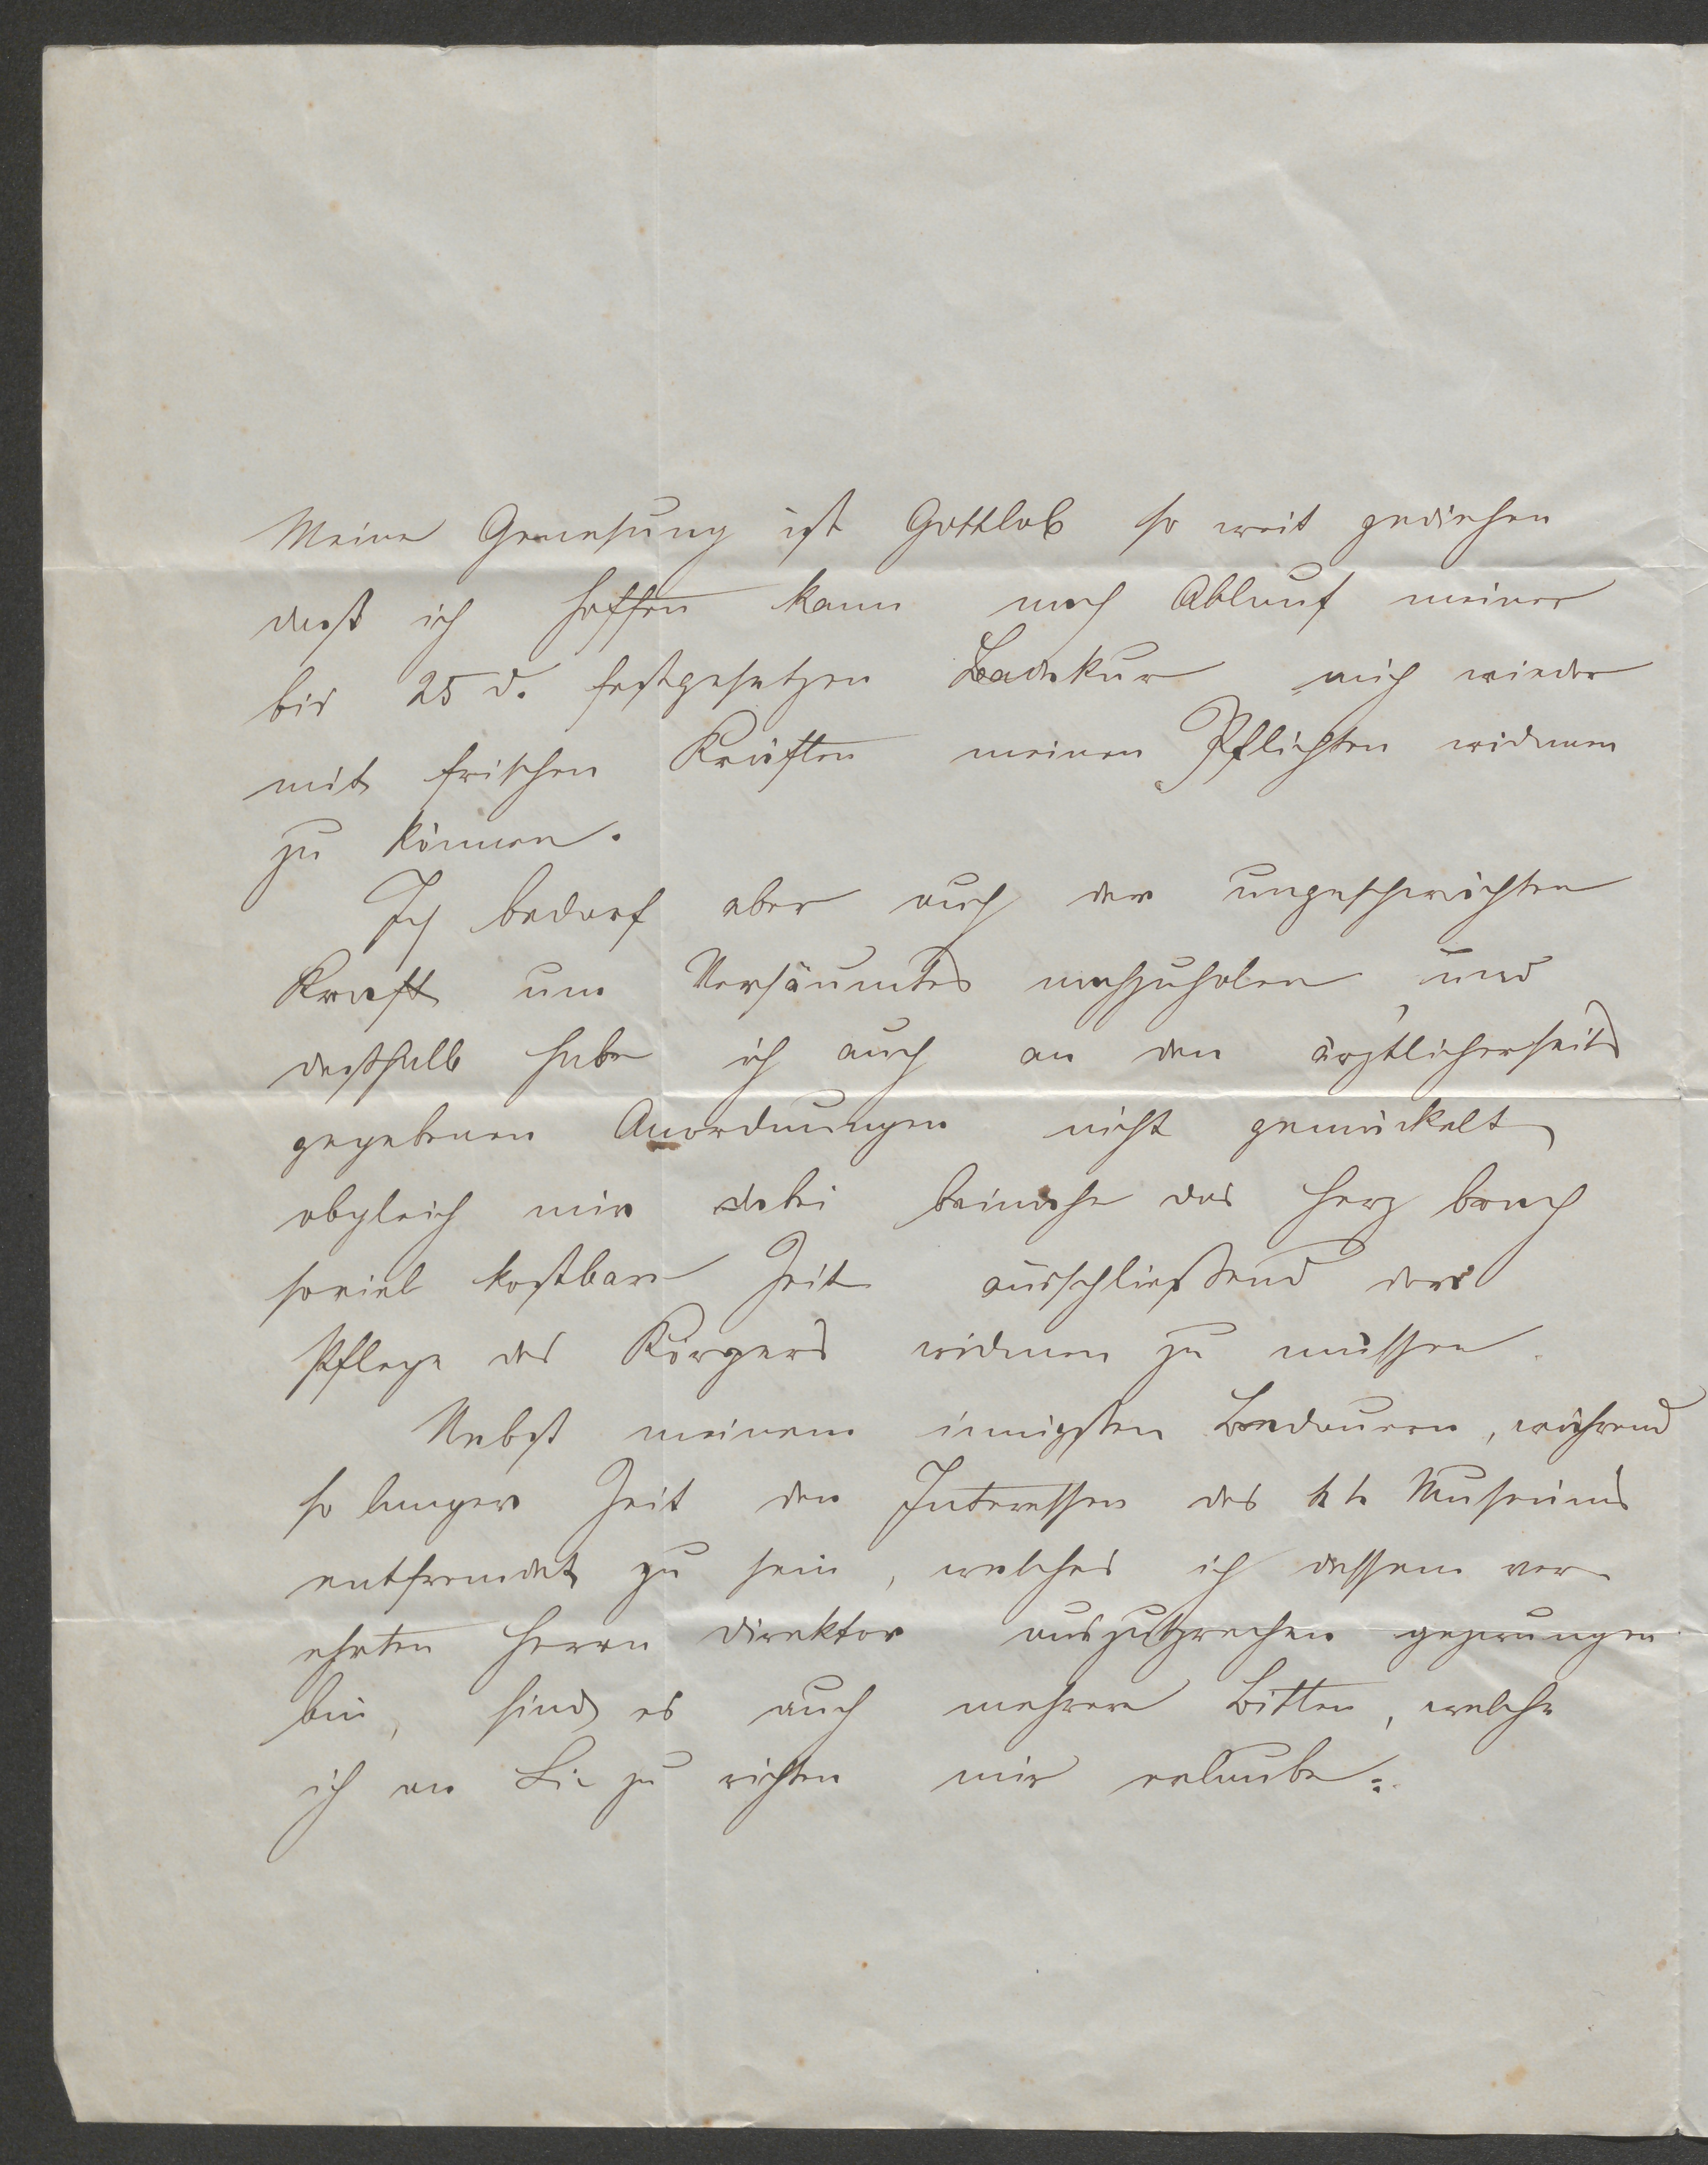 Meine Genesung ist Gottlob so weit gediehen
daß ich hoffen kann nach Ablauf meiner
bis 25 d. festgesetzen Badekur mich wieder
mit frischen Kräften meinen Pflichten widmen
zu können.
Ich bedarf aber auch der ungeschwächten
Kraft um Versäumtes nachzuholen und
deßhalb habe ich auch an den ärztlicherseits
gegebenen Anordnungen nicht gemäckelt
obgleich mir dabei beinahe das Herz brach
soviel kostbare Zeit ausschließend der
Pflege des Körpers widmen zu müssen.
Nebst meinem innigsten Bedauern, während
so langer Zeit den Interessen des kk Museums
entfremdet zu sein, welches ich dessem ver
ehrten Herrn Direktor auszusprechen gezwungen
bin, sind es auch mehrere Bitten, welche
ich an Sie zu richten mir erlaube: